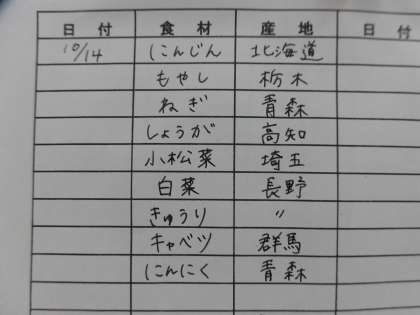 日付 食材 産地 日付
10/14 にんじん 北海道
もやし 栃木
ねぎ 青森
しょうが 高知
小松菜 埼玉
白菜 長野
きゅうり 〃
キャベツ 群馬
にんにく 青森